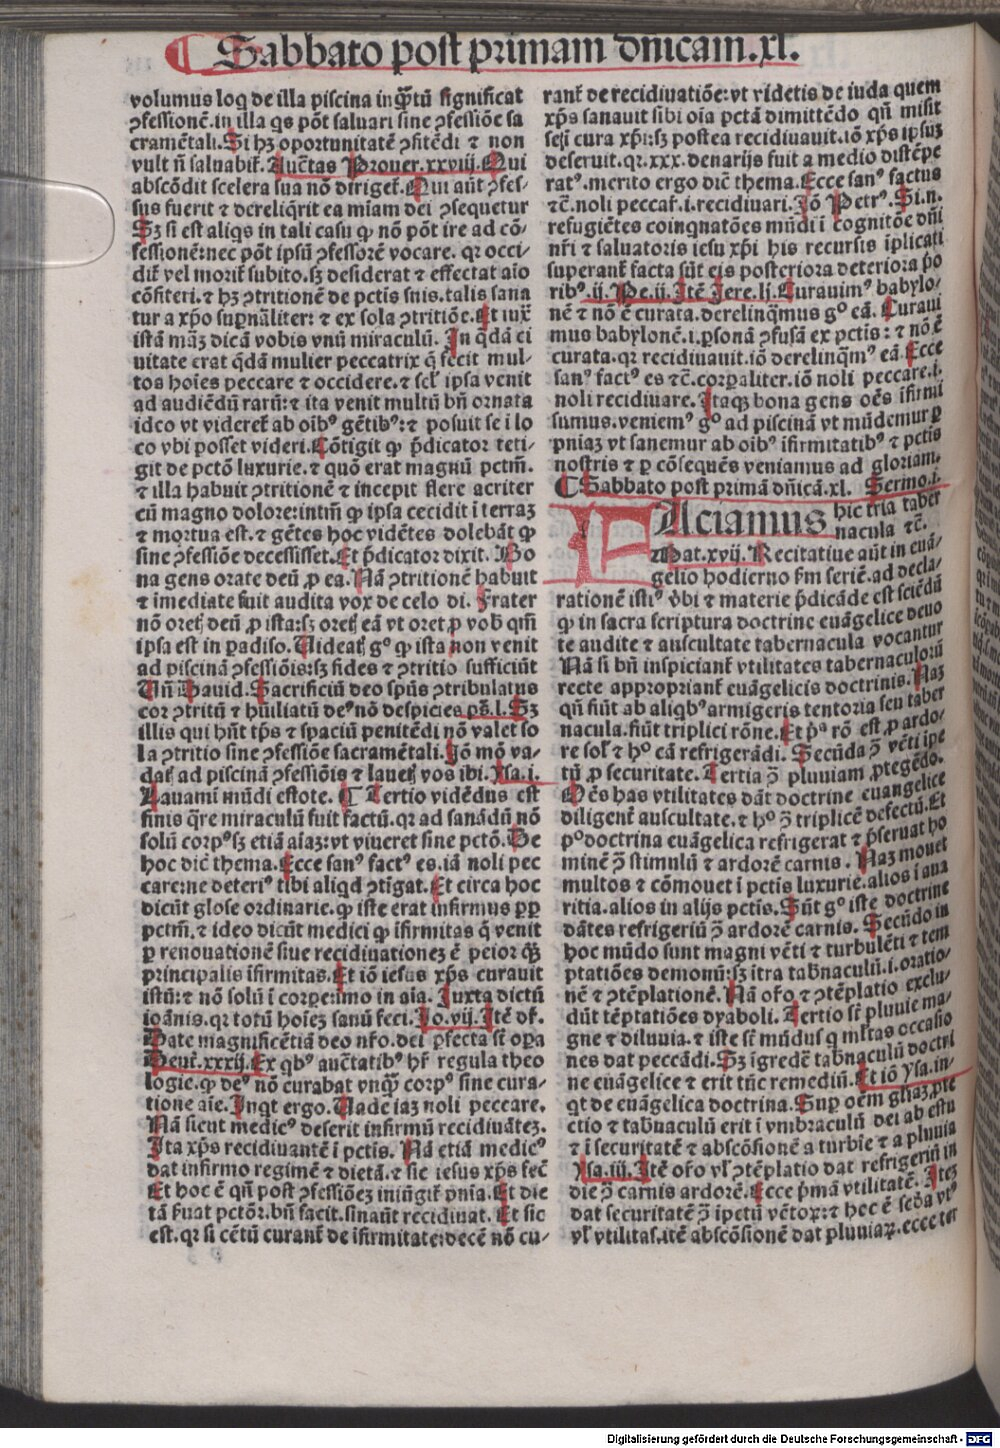 ¶ Sabbato post primam dñicam.xl.
volumus loq̇ de illa piscina inq̃ꝫtũ significat
ꝯfessionẽ.in illa q̇s põt saluari sine ꝯfessiõe sa
cramẽtali. Si hꝫ oportunitatẽ ꝯfitẽdi ⁊ non
vult nõ saluabit̃. Auct̃as Prouer.xxviij. Qui
abscõdit scelera sua nõ diriget̃. Qui aũt ꝯfes-
sus fuerit ⁊ dereliq̃rit ea miam dei ꝯsequetur
Sꝫ si est aliq̇s in tali casu ꝙ nõ põt ire ad cõ-
fessionẽ:nec põt ipsũ ꝯfessorẽ vocare. qꝛ occi-
dit̃ vel morit̃ subito.sꝫ desiderat ⁊ effectat aĩo
cõfiteri.⁊ hꝫ ꝯtritionẽ de pctis suis.talis sana
tur a xp̃o supnãliter:⁊ ex sola ꝯtritiõe. Et iux̃
istã maꝫ dicã vobis vnũ miraculũ. In q̃dã ci
uitate erat q̃dã mulier peccatrix q̃ fecit mul-
tos hoĩes peccare ⁊ occidere.⁊ sel̃ ipsa venit
ad audiẽdũ rarũ:⁊ ita venit multũ bñ ornata
ideo vt videret̃ ab oĩbꝰ gẽtibꝰ:⁊ posuit se i lo
co vbi posset videri. Cõtigit ꝙ p̃dicator teti-
git de pctõ luxurie.⁊ quõ erat magnũ pctm̃.
⁊ illa habuit ꝯtritionẽ ⁊ incepit flere acriter
cũ magno dolore:intm̃ ꝙ ipsa cecidit i terraꝫ
⁊ mortua est.⁊ gẽtes hoc vidẽtes dolebãt ꝙ
sine ꝯfessiõe decessisset. Et p̃dicator dixit. Bo
na gens orate deũ ꝓ ea. Nã ꝯtritionẽ habuit
⁊ imediate fuit audita vox de celo di. Frater
nõ oretꝭ deũ ꝓ ista:sꝫ oretꝭ eã vt oret ꝓ vob̃ qm̃
ipsa est in padiso. Uideatꝭ gͦ ꝙ ista non venit
ad piscinã ꝯfessiõis:sꝫ fides ⁊ ꝯtritio sufficiũt
Uñ Dauid. Sacrificiũ deo spũs ꝯtribulatus
cor ꝯtritũ ⁊ hũiliatũ deꝰ nõ despicies.ps̃.l. Sꝫ
illis qui hñt tp̃s ⁊ spaciũ penitẽdi nõ valet so
la ꝯtritio sine ꝯfessiõe sacramẽtali. Iõ mõ va-
datꝭ ad piscinã ꝯfessiõis ⁊ lauetꝭ vos ibi. Ysa.i.
Lauamĩ mũdi estote. ¶ Tertio vidẽdus est
finis q̃re miraculũ fuit factũ.qꝛ ad sanãdũ nõ
solũ corpꝰ sꝫ etiã aĩaꝫ:vt viueret sine pctõ. De
hoc dicit thema. Ecce sanꝰ factꝰ es.iã noli pec
care:ne deteriꝰ tibi aliqd ꝯtĩgat. Et circa hoc
dicũt glose ordinarie.ꝙ iste erat infirmus ꝓpꝑ
pctm̃.⁊ ideo dicũt medici ꝙ ĩfirmitas q̃ venit
ꝑ renouationẽ siue recidiuationeꝫ ẽ peior q̃ꝫ
principalis ĩfirmitas. Et iõ iesus xp̃s curauit
istũ:⁊ nõ solũ i corpe:imo in aĩa. Iuxta dictũ
ioãnis.qꝛ totũ hoĩeꝫ sanũ feci. Io.vij. Itẽ dr̃.
Date magnificẽtiã deo nr̃o.dei ꝑfecta st̃ opa
Deut̃.xxxij. Ex qbꝰ auct̃atibꝰ hr̃ regula theo
logie.ꝙ deꝰ nõ curabat vnq̃ꝫ corpꝰ sine cura-
tione aĩe. Inqt ergo. Uade iaꝫ noli peccare.
Nã sicut medicꝰ deserit infirmũ recidiuãteꝫ.
Ita xp̃s recidiuantẽ i pctis. Nã etiã medicꝰ
dat infirmo regimẽ ⁊ dietã.⁊ sic iesus xp̃s fec̃
Et hoc ẽ qñ post ꝯfessiõeꝫ iniũgit̃ pñia. Et die
tã s̃uat pctõꝝ.bñ facit.sinaũt recidiuat. Et sic
est.qꝛ si cẽtũ curant̃ de ĩfirmitate:decẽ nõ cu-
rant̃ de recidiuatiõe:vt videtis de iuda quem
xp̃s sanauit sibi oĩa pctã dimittẽdo qñ misit
se ĩ cura xp̃i:sꝫ postea recidiuauit.iõ xp̃s ipsuꝫ
deseruit.qꝛ.xxx.denarijs fuit a medio distẽpe
ratꝰ.merito ergo dicit̃ thema. Ecce sanꝰ factus
⁊c̃.noli peccar̃.i.recidiuari. Iõ Petrꝰ. Si.n.
refugiẽtes coinquatões mũdi i cognitõe dñi
nr̃i ⁊ saluatoris iesu xp̃i his recursis ĩplicati
superant̃ facta sũt eis posteriora deteriora p̃o
ribꝰ.ij. Pe.ii. Itẽ Iere.lj. Curauimꝰ babylo-
nẽ ⁊ nõ ẽ curata.derelinq̃mus gͦ eã. Curaui
mus babylonẽ.i.psonã ꝯfusã ex pctis:⁊ nõ ẽ
curata.qꝛ recidiuauit.iõ derelinq̃mꝰ eã. Ecce
sanꝰ factꝰ es ⁊c̃.corpaliter.iõ noli peccare.i.
noli recidiuare. Itaqꝫ bona gens oẽs ĩfirmi
sumus.veniemꝰ gͦ ad piscinã vt mũdemur ꝑ
pniaꝫ vt sanemur ab oĩbꝰ ĩfirmitatibꝰ ⁊ pctis
nostris ⁊ ꝑ cõsequẽs veniamus ad gloriam.
¶ Sabbato post primã dñicã.xl. Sermo.i.
FAciamus hic tria taber
nacula ⁊c̃.
Mat.xvij. Recitatiue aũt in euã-
gelio hodierno s̃m seriẽ.ad decla-
rationẽ istiꝰ v̓bi ⁊ materie p̃dicãde est sciẽdũ
ꝙ in sacra scriptura doctrine euãgelice deuo
te audite ⁊ auscultate tabernacula vocantur
Nã si bñ inspiciant̃ vtilitates tabernaculoꝝ
recte appropriant̃ euãgelicis doctrinis. Naꝫ
qñ fiũt ab aliqbꝰ armigeris tentoria seu taber
nacula.fiũt triplici rõne. Et p̃ª rõ est ꝓ ardo-
re sol̃ ⁊ hͦ eã refrigerãdi. Secũda ꝯ̃ vẽti ĩpe
tũ ꝓ securitate. Tertia ꝯ̃ pluuiam ꝓtegẽdo.
Oẽs has vtilitates dãt doctrine euangelice
diligent̃ auscultate.⁊ hͦ ꝯ̃ triplicẽ defectũ. Et
pͦ doctrina euãgelica refrigerat ⁊ p̃seruat ho
minẽ ꝯ̃ stimulũ ⁊ ardorẽ carnis. Naꝫ mouet
multos ⁊ cõmouet i pctis luxurie.alios i aua
ritia.alios in alijs pctis. Sũt gͦ iste doctrine
dãtes refrigeriũ ꝯ̃ ardorẽ carnis. Secũdo in
hoc mũdo sunt magni vẽti ⁊ turbulẽti ⁊ tem
ptatiões demonũ:sꝫ ĩtra tab̃naculũ.i.oratio-
nẽ ⁊ ꝯtẽplationẽ. Nã or̃o ⁊ ꝯtẽplatio exclu-
dũt tẽptatiões dyaboli. Tertio sr̃ pluuie ma-
gne ⁊ diluuia.⁊ iste st̃ mũdus q̃ mltas occasio
nes dat peccãdi. Sꝫ ĩgredẽ tab̃naculũ doctri
ne euãgelice ⁊ erit tũc remediũ. Et iõ ysa.in-
qt de euãgelica doctrina. Sup oẽm gliaꝫ ꝓte
ctio ⁊ tab̃naculũ erit i vmbraculũ dei ab estu
⁊ i securitatẽ ⁊ abscõsionẽ a turbie ⁊ a pluuia
Ysa.iii. Itẽ or̃o vl̃ ꝯtẽplatio dat refrigeriũ in
die ꝯ̃ carnis ardorẽ. Ecce p̃mã vtilitatẽ. Iteꝫ
dat securitatẽ ꝯ̃ ipetũ vẽtoꝝ:⁊ hec ẽ scd̃a vtꝰ
vl̃ vtilitas.itẽ abscõsionẽ dat pluuiaꝝ.ecce ter
Digitalisierung gefördert durch die Deutsche Forschungsgemeinschaft - DFG